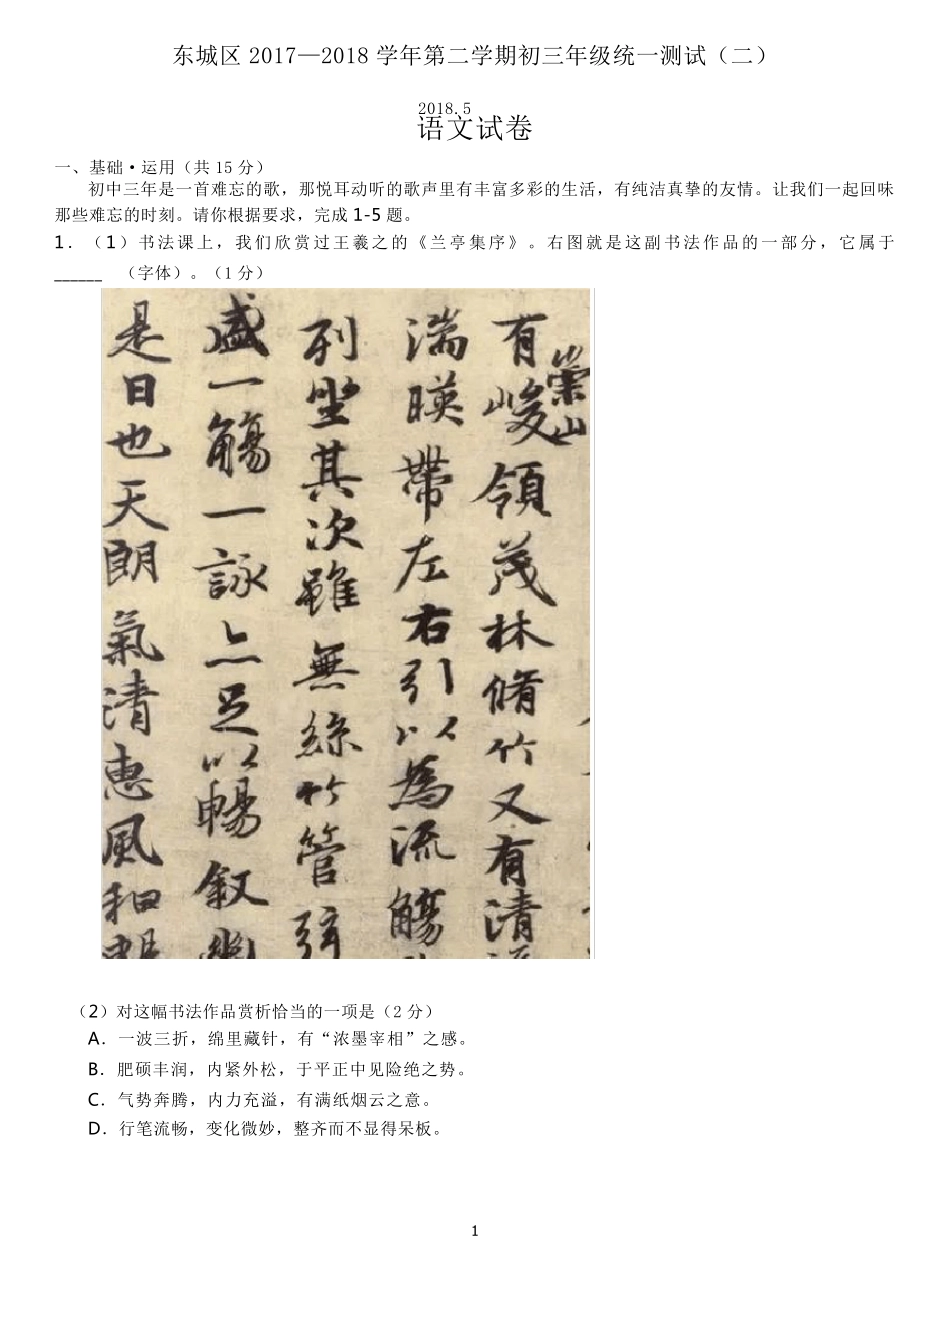 东城区 2017—2018 学年第二学期初三年级统一测试（二）
2018.5
语文试卷
一、基础·运用（共 15 分）
初中三年是一首难忘的歌，那悦耳动听的歌声里有丰富多彩的生活，有纯洁真挚的友情。让我们一起回味
那些难忘的时刻。请你根据要求，完成 1-5 题。
1．（1）书法课上，我们欣赏过王羲之的《兰亭集序》。右图就是这副书法作品的一部分，它属于
______ （字体）。（1 分）
崇山
有峻領茂林脩竹又有清流
湍暎帶左右引以為流觴
列坐其次雖無絲竹管弦
盛一觴一詠亦足以暢叙幽
是日也天朗氣清惠風和暢
（2）对这幅书法作品赏析恰当的一项是（2 分）
A．一波三折，绵里藏针，有“浓墨宰相”之感。
B．肥硕丰润，内紧外松，于平正中见险绝之势。
C．气势奔腾，内力充溢，有满纸烟云之意。
D．行笔流畅，变化微妙，整齐而不显得呆板。
1